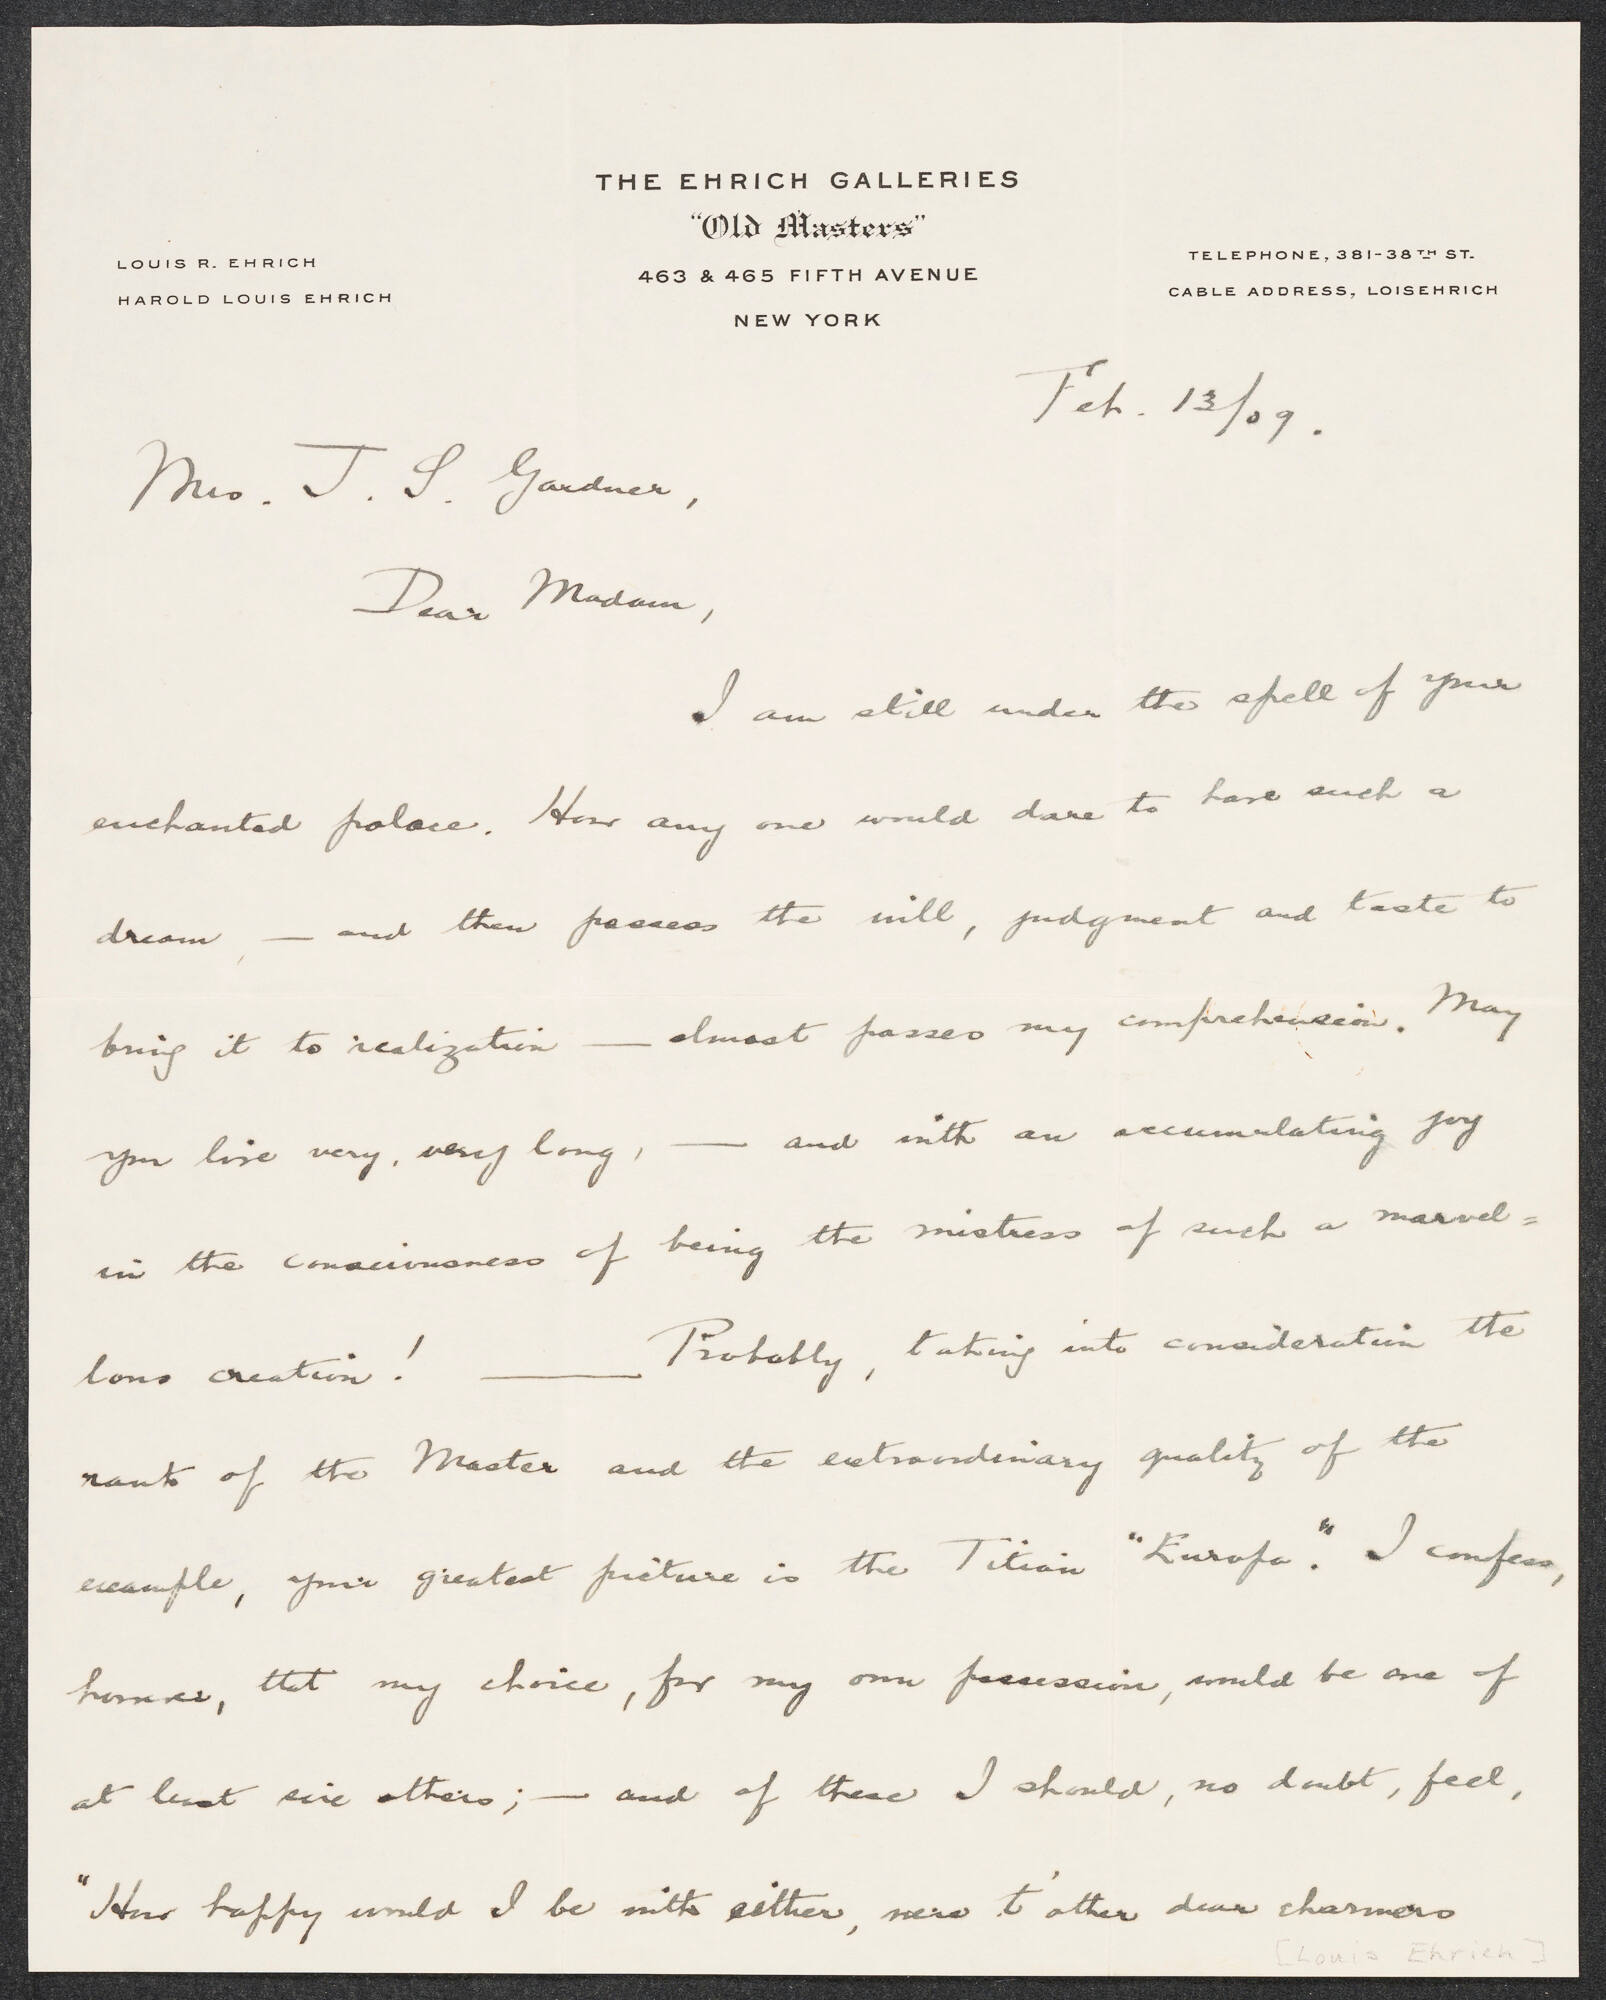 THE EHRICH GALLERIES
"Old Masters"
463 & 465 FIFTH AVENUE
NEW YORK
LOUIS R. EHRICH
HAROLD LOUIS EHRICH
TELEPHONE, 381-38TH ST.
CABLE ADDRESS, LOISEHRICH
Feb. 13/09.
Mrs. J. S. Gardner,
Dear Madam,
I am still under the spell of your
enchanted palace. How any one would dare to have such a
dream, — and then possess the will, judgment and taste to
bring it to realization — almost passes my comprehension. May
you live very, very long, — and with an accumulating joy
in the consciousness of being the mistress of such a marvel=
lous creation! — Probably, taking into consideration the
rank of the Master and the extraordinary quality of the
example, your greatest picture is the Titian "Europa". I confess,
however, that my choice, for my own possession, would be one of
at least six others; — and of these I should, no doubt, feel,
"How happy would I be with either, were t'other dear charmers
[Louis Ehrich]